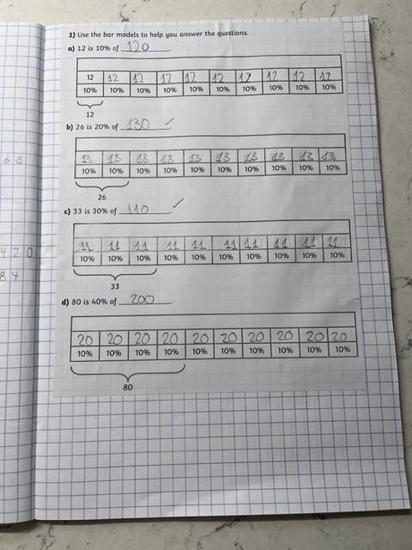 1) Use the bar models to help you answer the questions.
a) 12 is 10% of 120
12 12 12 12 12 12 12 12 12 12
10% 10% 10% 10% 10% 10% 10% 10% 10% 10%
12
b) 26 is 20% of 130 ✓
13 13 13 13 13 13 13 13 13 13
10% 10% 10% 10% 10% 10% 10% 10% 10% 10%
26
c) 33 is 30% of 110 ✓
11 11 11 11 11 11 11 11 11 11
10% 10% 10% 10% 10% 10% 10% 10% 10% 10%
33
d) 80 is 40% of 200
20 20 20 20 20 20 20 20 20 20
10% 10% 10% 10% 10% 10% 10% 10% 10% 10%
80
68
420
84